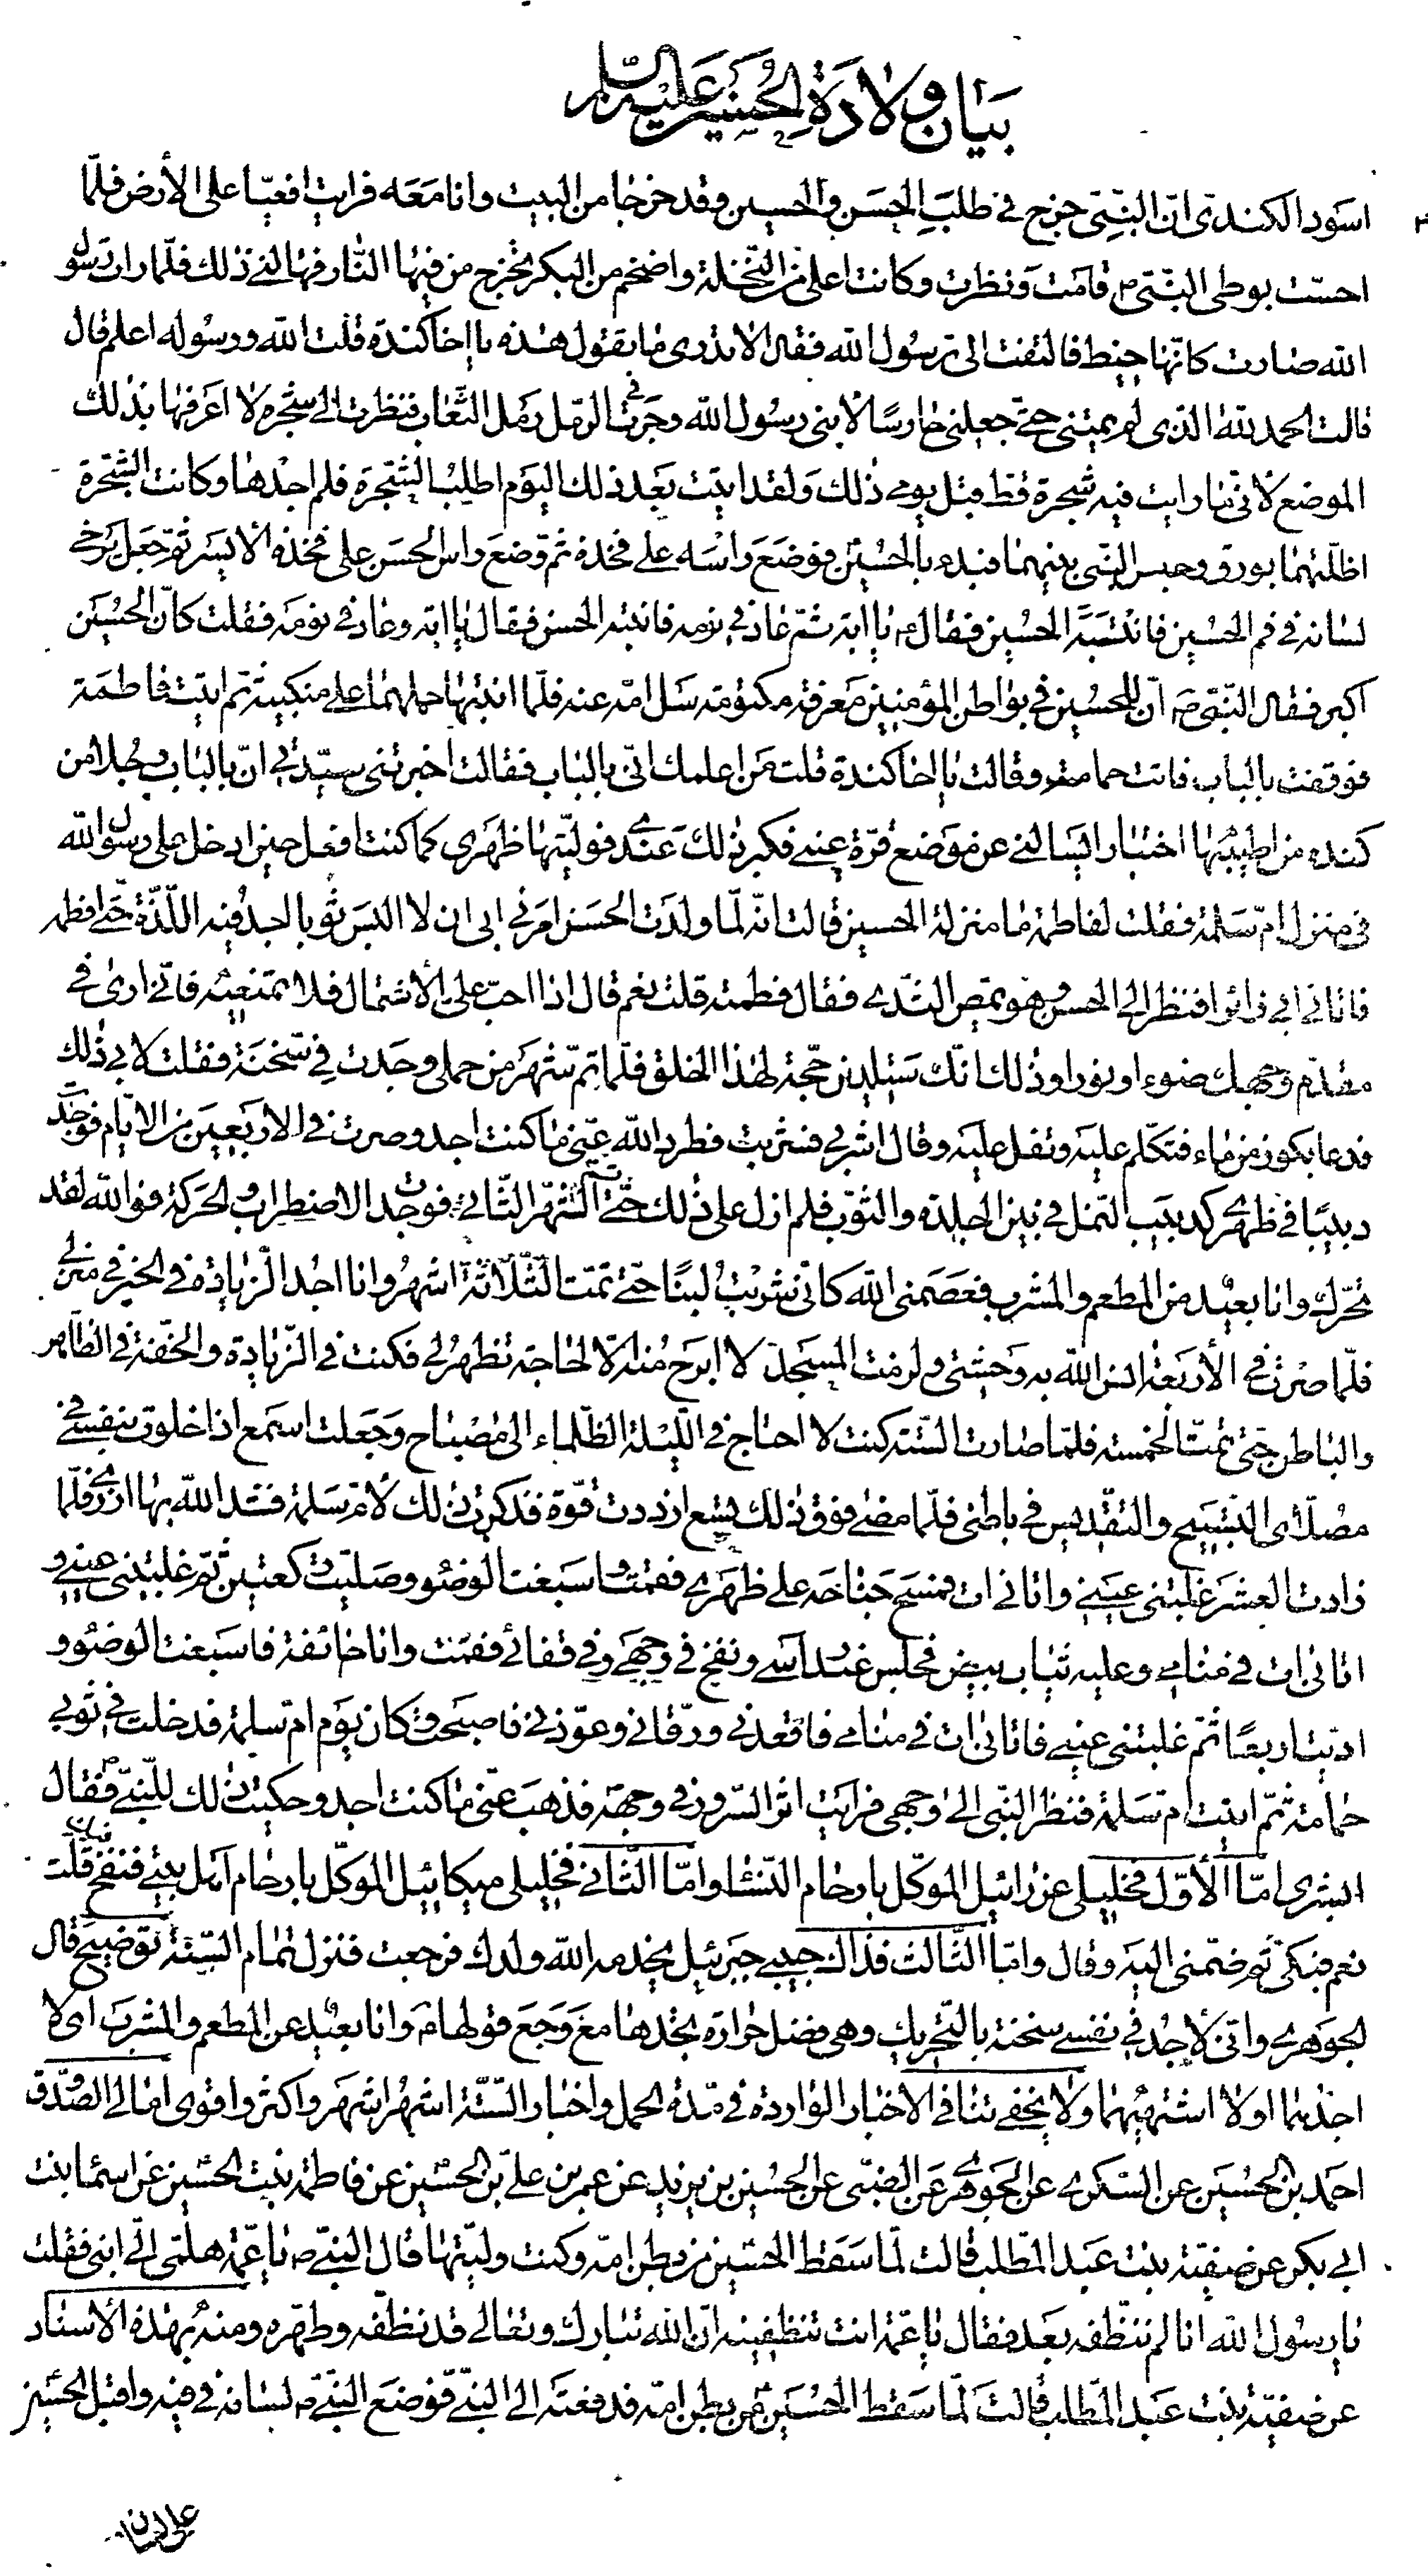 بيان ولادة الحسين عليه السلام
اسود الكندى انّ النبىّ خرج فى طلب الحسن والحسين وقد خرجا من البيت وانا معه فرايت افعيّا على الأرض فلمّا
احسّت بوطى النبىّ ص قامت ونظرت وكانت اعلى من النّخلة واضخم من البكر يخرج من فيها النّار فهالنى ذلك فلمّا رات رسول
الله صارت كانّها خيط فالتفت الىّ رسول الله فقال الا تدرى ما يقول هذه يا اخا كندة قلت الله ورسوله اعلم قال
قالت الحمد لله الذى لم يمتنى حتّى جعلنى حارسًا لابنى رسول الله وجرت فى الرمل رمل الشّعاب فنظرت الى شجرة لا اعرفها بذلك
الموضع لأنّى ما رايت فيه شجرة قط قبل يومى ذلك ولقد اتيت بعد ذلك اليوم اطلب الشّجرة فلم اجدها وكانت الشّجرة
اظلّتهما بورق وجلس النبىّ بينهما فبدء بالحسين فوضع راسه على فخذه ثم وضع راس الحسن على فخذه الأيسر ثم جعل يرخى
لسانه فى فم الحسين فانتبه الحسين فقال يا ابه ثم عاد فى نومه فانتبه الحسن فقال يا ابه وعاد فى نومه فقلت كانّ الحسين
اكبر فقال النّبىّ ص انّ للحسين فى بواطن المؤمنين معرفة مكتومة سل امّه عنه فلمّا انتبها حملهما على منكبيه ثم اتيت فاطمة
فوقفت بالباب فاتت حمامة وقالت يا اخا كندة قلت من اعلمك انّى بالباب فقالت اخبرتنى سيّدتى انّ بالباب رجلا من
كنده من اطيبها اخبارا يسالنى عن موضع قرّة عينى فكبر ذلك عندى فوليتها ظهرى كما كنت افعل حين ادخل على رسول الله
فى منزل امّ سلمة فقلت لفاطمة ما منزلة الحسين قالت انّه لمّا ولدت الحسن امرنى ابى ان لا البس ثوبا اجد فيه اللّذّة حتّى افطمه
فاتانى ابى زائرا فنظر الى الحسن وهو يمصّ الثدى فقال فطمته قلت نعم قال اذا احبّ علىّ الأشتمال فلا تمنعيه فانّى ارى فى
مقدّم وجهك ضوءا ونورا وذلك انّك ستلدين حجّة لهذا الخلق فلمّا تمّ شهر من حملى وجدت فىّ سخنة فقلت لابى ذلك
فدعا بكوز من ماء فتكلّم عليه وتفل عليه وقال اشربى فشربت فطرد الله عنّى ما كنت اجد وصرت فى الاربعين من الايّام فوجدت
دبيبًا فى ظهرى كدبيب النمل فى بين الجلدة والثوب فلم ازل على ذلك حتّى تمّ الشّهر الثّانى فوجدت الاضطراب والحركة فوالله لقد
تحرّك وانا بعيد من المطعم والمشرب فعصمنى الله كانّى شربت لبنًا حتّى تمّت الثّلاثة اشهر وانا اجد الزّيادة فى الخير فى منزلى
فلمّا صرت فى الأربعة انس الله به وحشتى ولزمت المسجد لا ابرح منه الّا لحاجة تظهر لى فكنت فى الزّيادة والخفّة فى الظّاهر
والباطن حتّى تمّت الخمسة فلمّا صارت السّتة كنت لا احتاج فى اللّيلة الظّلماء الى مصباح وجعلت اسمع اذا خلوت بنفسى فى
مصلّاى التسبيح والتقديس فى باطنى فلمّا مضى فوق ذلك تسع ازددت قوّة فذكرت ذلك لأمّ سلمة فشدّ الله بها ازرى فلمّا
زادت العشر غلبتنى عينى واتانى ات فمسح جناحه على ظهرى فقمت واسبغت الوضوء وصلّيت ركعتين ثمّ غلبتنى عينى و
اتانى ات فى منامى وعليه ثياب بيض فجلس عند راسى ونفخ فى وجهى وفى قفائى فقمت وانا خائفة فاسبغت الوضوء و
ادّيت اربعًا ثمّ غلبتنى عينى فاتانى ات فى منامى فاقعدنى ورقانى وعوّذنى فاصبحت وكان يوم امّ سلمة فدخلت فى ثوب
حمامة ثمّ اتيت امّ سلمة فنظر النبى الى وجهى فرايت اثر السّرور فى وجهه فذهب عنّى ما كنت اجد وحكيت ذلك للنّبىّ ص فقال
ابشرى امّا الأوّل فخليلى عزرائيل الموكّل بارحام النّساء وامّا الثّانى فخليلى ميكائيل الموكّل بارحام اهل بيتى فنفخ فيك قلت
نعم فبكى ثم ضمّنى اليه وقال وامّا الثّالث فذاك حبيبى جبرئيل يخدمه الله ولدك فرجعت فنزل تمام السّتة توضيح قال
الجوهرى وانّى لأجد فى نفسى سخنة بالتّحريك وهى فضل حرارة يجدها مع وجع قولها م وانا بعيد عن المطعم والمشرب اى لا
اجدهما او لا اشتهيهما ولا يخفى تنافى الاخبار الواردة فى مدّة الحمل واخبار السّتّة اشهر اشهر واكثر واقوى امالى الصّدوق
احمد بن الحسين عن السّكرى عن الجوهرى عن الضبّى عن الحسين بن يزيد عن عمر بن علىّ بن الحسين عن فاطمة بنت الحسين عن اسما بنت
ابى بكر عن صفيّة بنت عبد المطّلب قالت لمّا سقط الحسين من بطن امّه وكنت وليتها قال النبىّ ص يا عمّة هلمّى الىّ ابنى فقلت
يا رسول الله انا لم ننظّفه بعد فقال يا عمّة انت تنظّفينه انّ الله تبارك وتعالى قد نظّفه وطهّره ومنه بهذه الأسناد
عن صفيّة بنت عبد المطّلب قالت لمّا سقط الحسين من بطن امّه فدفعته الى النبىّ فوضع النبىّ ص لسانه فى فيه واقبل الحسين
على لسان